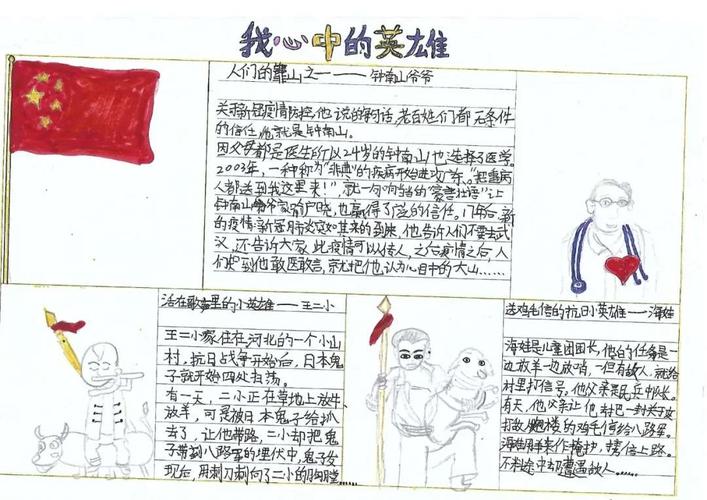 我心中的英雄
人们的靠山之一——钟南山爷爷
关于新冠疫情防控,他说的句话,老百姓们都无条件
的信任,他就是钟南山。
因父母都是医生所以24岁的钟南山也选择了医学。
2003年,一种称为"非典"的疾病开始进攻广东。"把重病
人都送到我这里来!",就一句响当当的"豪言壮语"让
钟南山爷爷家喻户晓,也赢得了广泛的信任。17年后,新
的疫情新冠肺炎突如其来的到来,他告诉人们不要去武
汉,还告诉大家,此疫情可以传人,之后疫情之后,人
们吃到他敢医敢言,就把他认为心目中的大山……
活在歌声里的小英雄——王二小
王二小家住在河北的一个小山
村,抗日战争开始后,日本鬼
子就开始四处扫荡。
有一天,二小正在草地上放牛
放羊,可是被日本鬼子给抓
去了,让他带路,二小却把鬼
子带到八路军的埋伏中,鬼子发
现后,用刺刀刺向了二小的胸膛……
送鸡毛信的抗日小英雄——海娃
海娃是儿童团团长,他的任务是一
边放羊一边放哨,一但有敌人,就给
村里打信号。他父亲是民兵中队长。
有天,他父亲让他去把一封关于攻
打敌人炮楼的鸡毛信给八路军。
海娃用羊来作掩护,揣信上路。
不料途中却遭遇敌人……